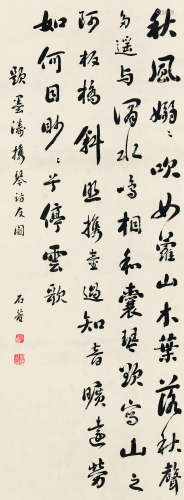 秋風嫋嫋吹女蘿山木葉落秋聲
多遥与澗水鳴相和囊琴欵寫山之
阿板橋斜照攜壺過知音曠遠勞
如何目眇眇兮停雲歌
題墨濤攜琴訪友圖
石菴